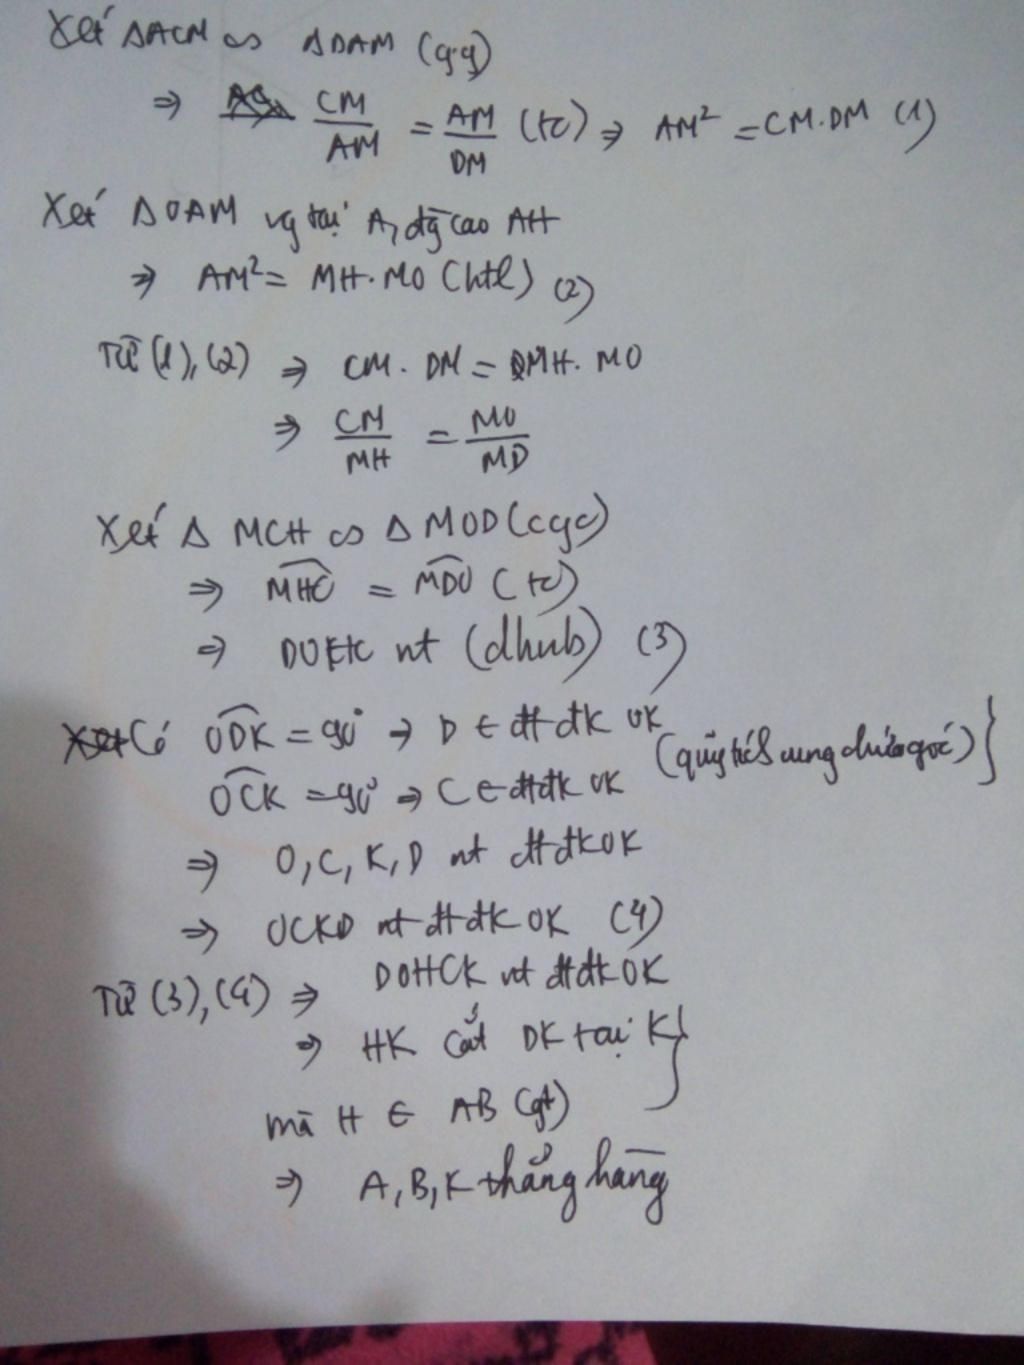 Xét ΔACM ∽ ΔDAM (g.g)
⇒ CM/AM = AM/DM (tc) ⇒ AM² = CM.DM (1)
Xét ΔOAM vg tại A, đg cao AH
⇒ AM² = MH.MO (htl) (2)
Từ (1), (2) ⇒ CM. DM = MH. MO
⇒ CM/MH = MO/MD
Xét Δ MCH ∽ Δ MOD (cgc)
⇒ MHC = MDO (tc)
⇒ DOHC nt (dhnb) (3)
Có ODK = 90° → D ∈ đt đk OK
(quỹ tích cung chứa góc) }
OCK = 90° ⇒ C ∈ đt đk OK
⇒ O, C, K, D nt đt đk OK
⇒ OCKD nt đt đk OK (4)
Từ (3), (4) ⇒ DOHCK nt đt đk OK
⇒ HK cắt DK tại K }
mà H ∈ AB (gt)
⇒ A, B, K thẳng hàng